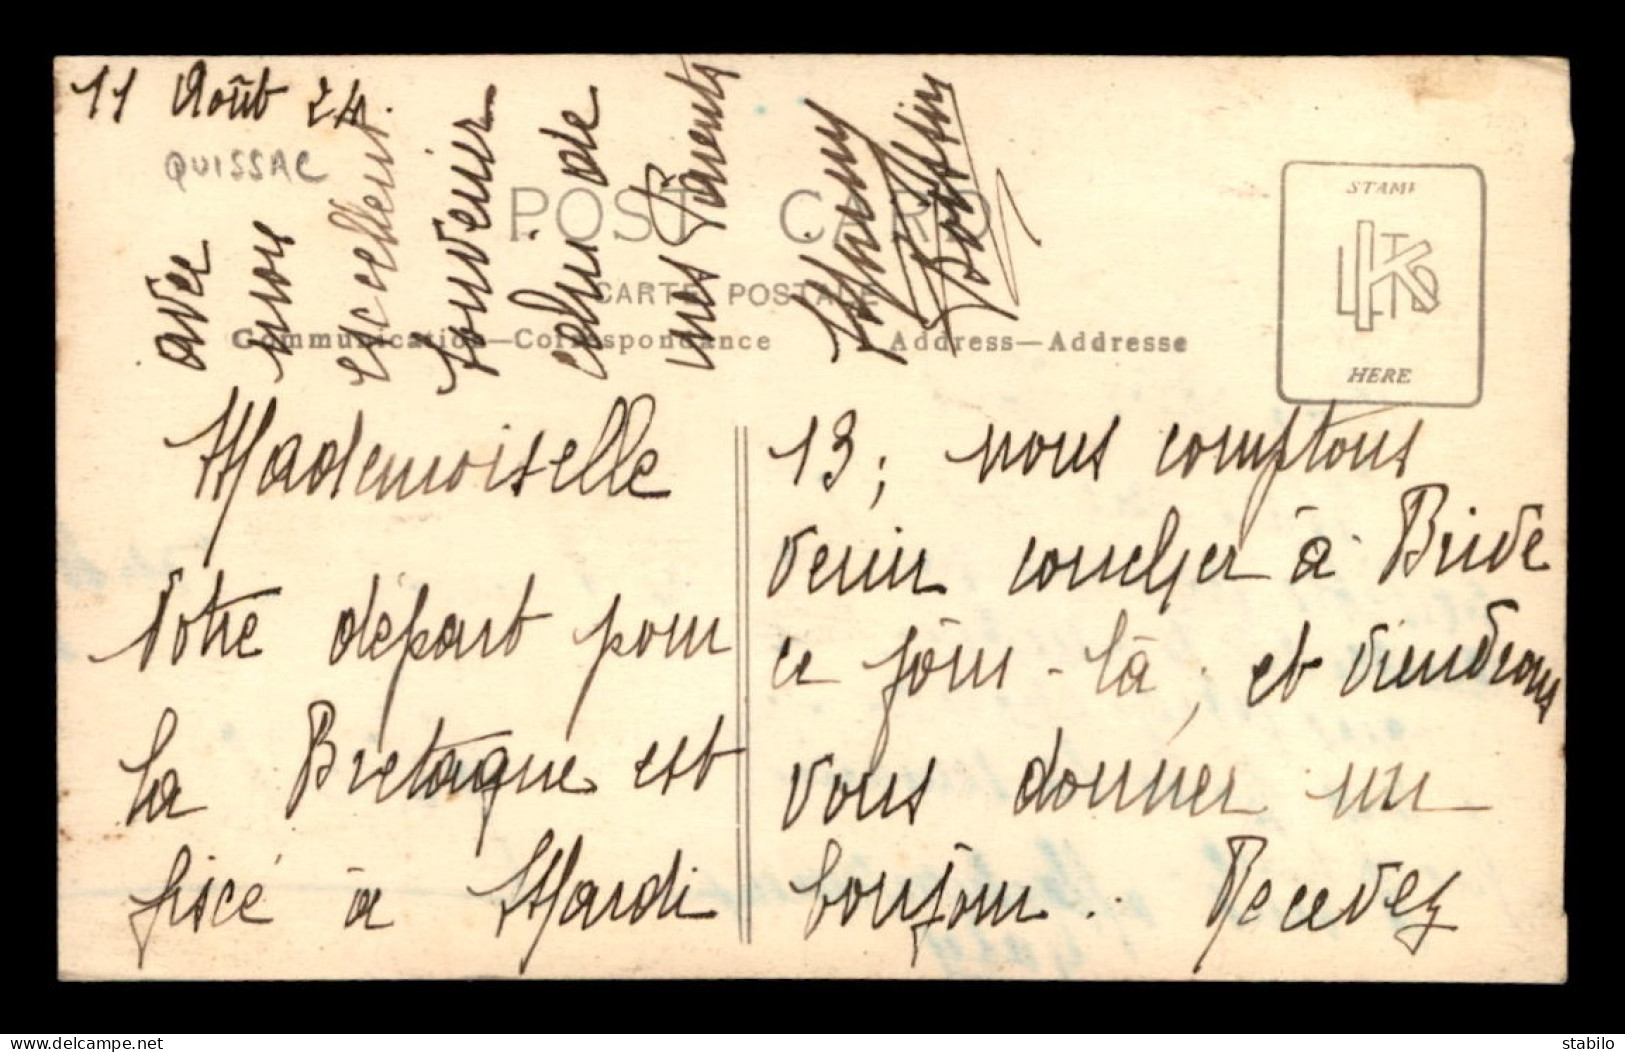 11 Août 24.
QUISSAC
POST CARD
CARTE POSTALE
Communication—Correspondance
Address—Addresse
STAMP
LKLTD
HERE
Mademoiselle
Votre départ pour
la Bretagne est
fixé à Mardi
13; nous comptons
venir coucher à Brive
ce jour-là, et viendrons
vous donner un
bonjour. Recevez
avec
mon
excellent
souvenir
celui de
mes Parents
stabilo